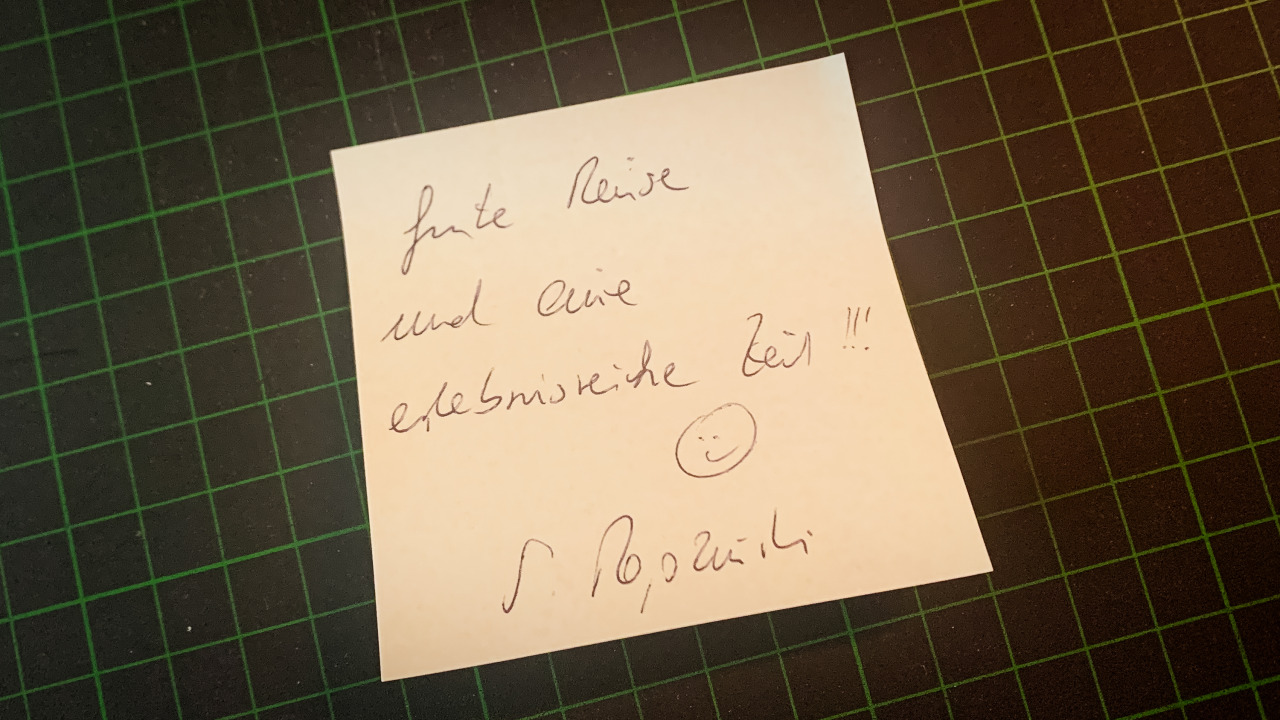 Gute Reise
und eine
erlebnisreiche Zeit !!!
S.